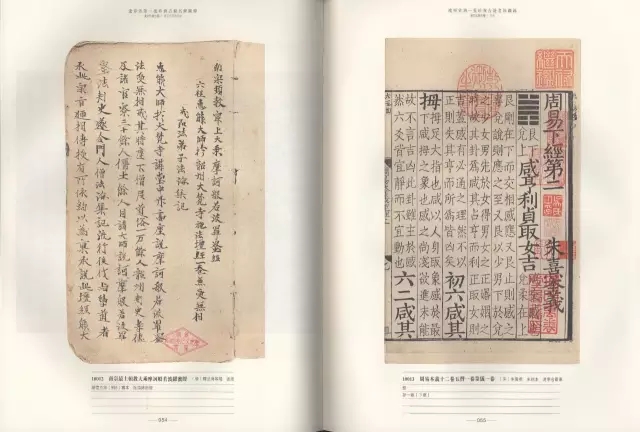 南宗頓教最上大乘摩訶般若波羅蜜經
六祖惠能大師於韶州大梵寺施法壇經一卷兼受無相
戒弘法弟子法海集記
惠能大師於大梵寺講堂中昇高座說摩訶般若波羅蜜
法受無相戒其時座下僧尼道俗一万餘人韶州刺史等據
及諸官寮三十餘人儒士餘人同請大師說摩訶般若波羅
蜜法刺史遂令門人僧法海集記流行後代与學道者
承此宗旨遞相傳授有所依約以為稟承說此壇經能大
周易下經第二
朱熹本義
艮下兌上咸亨利貞取女吉兌柔在上
艮剛在下而交相感應又艮止則感之
專兌說則應之至又艮以少男下於兌
之少女男先於女得男女之正婚姻之
時故其卦為咸其占亨而利正取女則
吉蓋感有必通之理然不以
正則失其亨而所為皆凶矣初六咸其
拇拇足大指也咸以人身取象感於最
下咸拇之象也感之尚淺欲進未能
故不言吉凶此卦雖主於感
然六爻皆宜靜而不宜動也六二咸其
10013 周易本義十二卷五贊一卷筮儀一卷
055